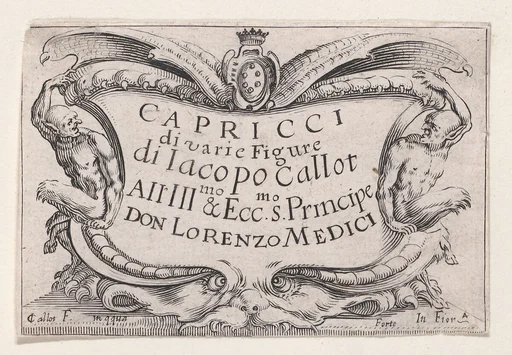 CAPRICCI
di varie Figure
di Iacopo Callot
All Ill^mo & Ecc^mo. S. Principe
DON LORENZO MEDICI
Callot F. in aqua
forte In Fior^A